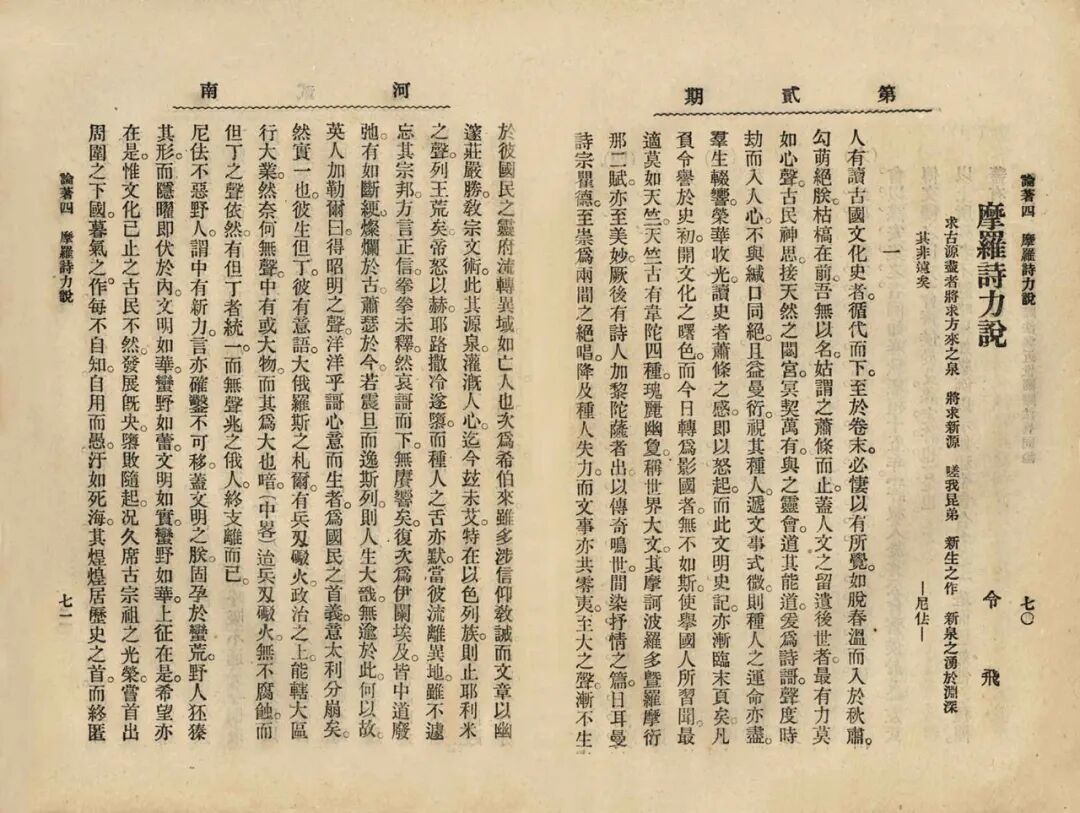 第貳期
論著四　摩羅詩力說
七〇
摩羅詩力說
令飛
求古源盡者將求方來之泉　將求新源　嗟我昆弟　新生之作　新泉之湧於淵深
其非遠矣
—尼佉—
一
人有讀古國文化史者。循代而下。至於卷末。必悽以有所覺。如脫春溫而入於秋肅。
勾萌絕朕。枯槁在前。吾無以名。姑謂之蕭條而止。蓋人文之留遺後世者。最有力莫
如心聲。古民神思。接天然之閟宮。冥契萬有。與之靈會。道其能道。爰爲詩謌。聲度時
劫。而入人心。不與緘口同絕。且益曼衍。視其種人。遞文事式微。則種人之運命亦盡。
羣生輟響。榮華收光。讀史者蕭條之感。即以怒起。而此文明史記。亦漸臨末頁矣。凡
負令譽於史初。開文化之曙色。而今日轉爲影國者。無不如斯。使舉國人所習聞。最
適莫如天竺。天竺古有韋陀四種。瑰麗幽敻。稱世界大文。其摩訶波羅多暨羅摩衍
那二賦。亦至美妙。厥後有詩人加黎陀薩者出。以傳奇鳴世。間染抒情之篇。日耳曼
詩宗瞿德。至崇爲兩間之絕唱。降及種人失力。而文事亦共零夷。至大之聲。漸不生
河南
於彼國民之靈府。流轉異域。如亡人也。次爲希伯來。雖多涉信仰敎誡。而文章以幽
邃莊嚴勝。敎宗文術。此其源泉。灌漑人心。迄今玆未艾。特在以色列族。則止耶利米
之聲。列王荒矣。帝怒以赫。耶路撒冷遂隳。而種人之舌亦默。當彼流離異地。雖不遽
忘其宗邦。方言正信。拳拳未釋。然哀謌而下。無賡響矣。復次爲伊蘭埃及。皆中道廢
弛。有如斷綆。燦爛於古。蕭瑟於今。若震旦而逸斯列。則人生大戩。無逾於此。何以故。
英人加勒爾曰。得昭明之聲。洋洋乎謌心意而生者。爲國民之首義。意太利分崩矣。
然實一也。彼生但丁。彼有意語。大俄羅斯之札爾。有兵刃礮火。政治之上。能轄大區
行大業。然奈何無聲。中有或大物。而其爲大也喑。(中畧)迨兵刃礮火。無不腐蝕。而
但丁之聲依然。有但丁者統一。而無聲兆之俄人。終支離而已。
尼佉不惡野人。謂中有新力。言亦確鑿不可移。蓋文明之朕。固孕於蠻荒。野人狉獉
其形。而隱曜即伏於內。文明如華。蠻野如蕾。文明如實。蠻野如華。上征在是。希望亦
在是。惟文化已止之古民不然。發展旣央。隳敗隨起。况久席古宗祖之光榮。嘗首出
周圍之下國。暮氣之作。每不自知。自用而愚。汙如死海。其煌煌居歷史之首。而終匿
論著四　摩羅詩力說
七一